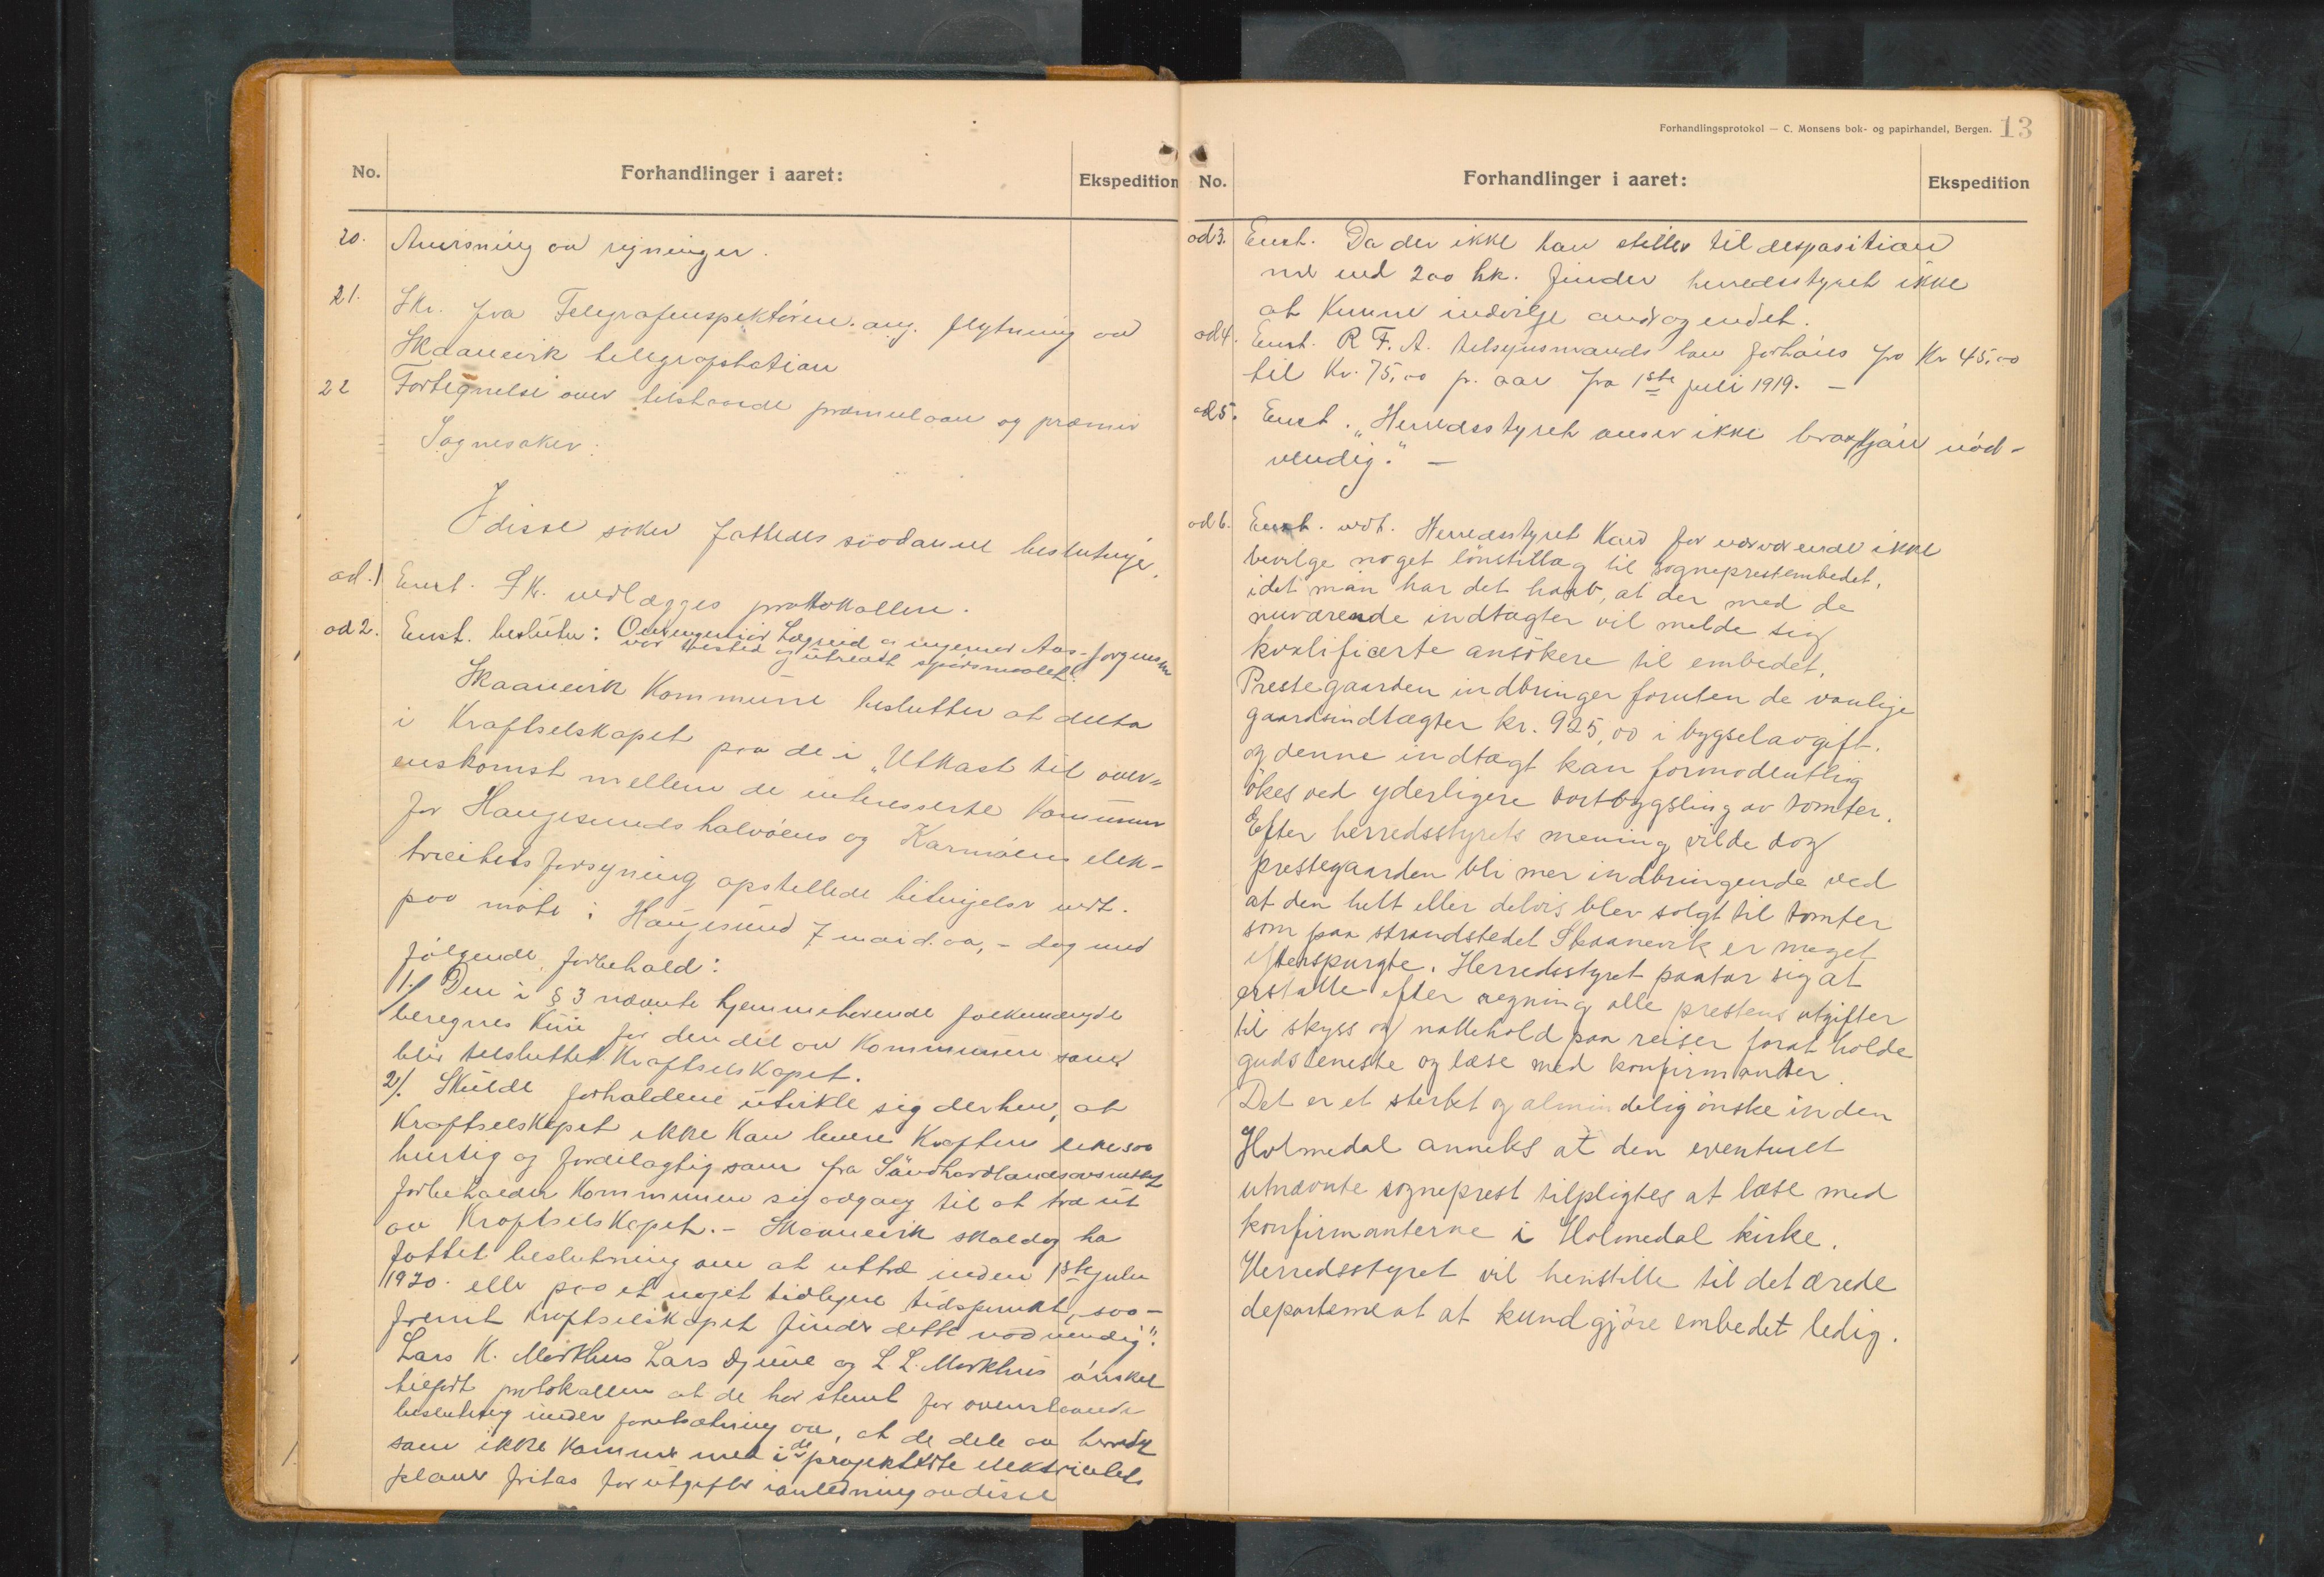 No.
Forhandlinger i aaret:
Ekspedition
20. Anvisning av regninger.
21. Skr. fra Telegrafinspektøren ang. flytning av
Skaanevik telegrafstation
22 Fortegnelse over tilstaaede præmielaan og præmier
Sognesaker:
I disse saker fattedes saadanne beslutninger.
ad.1 Enst. Skr. vedlægges protokollen.
ad 2. Enst. besluttn: Overingeniør Lægreid og ingeniør Aas-Jørgensen
var tilsted og utredet spørsmaalet.
Skaanevik Kommune beslutter at delta
i Kraftselskapet paa de i „Utkast til over„
enskomst mellem de interesserte Kommuner
for Haugesundshalvøens og Karmøens elek-
tricitetsforsyning opstillede betingelser vedt.
paa møte i Haugesund 7 mai d. aa, - dog med
følgende forbehold:
1./ Den i § 3 nævnte hjemmehørende folkemængde
beregnes kun for den del av Kommunen som
blir tilsluttet Kraftselskapet.
2/. Skulde forholdene utvikle sig derhen, at
Kraftselskapet ikke kan levere Kraften likesaa
hurtig og fordelagtig som fra Søndhordlandsavsnittet
forbeholder Kommunen sig adgang til at træ ut
av Kraftselskapet. - Skaanevik skal dog ha
fattet beslutning om at uttræ inden 1ste juli
1920. eller paa et noget tidligere tidspunkt, saa-
fremt Kraftselskapet finder dette nødvendig".
Lars K. Markhus Lars Djuve og L. L. Markhus ønsket
tilført protokollen at de har stemt for ovenstaaende
beslutning under forutsætning av, at de dele av herredet
som ikke kommer med i de projekterte elektricitets
planer fritas for utgifter i anledning av disse
Forhandlingsprotokol — C. Monsens bok- og papirhandel, Bergen. 13
No.
Forhandlinger i aaret:
Ekspedition
ad 3. Enst. Da der ikke kan stilles til desposition
mer end 200 hk. finder herredsstyret ikke
at kunne indvilge andragendet.
ad 4. Enst. R. F. A. tilsynsmands løn forhøies fra Kr 45,00
til Kr. 75,00 pr. aar fra 1ste juli 1919. —
ad 5. Enst. „Herredsstyret anser ikke nød-
vendig." —
ad 6. Enst. vedt. Herredsstyret kan for nærværende ikke
bevilge noget lønstillæg til sogneprestembedet,
idet man har det haab, at der med de
nuværende indtægter vil melde sig
kvalificerte ansøkere til embedet.
Prestegaarden indbringer foruten de vanlige
gaardsindtægter kr. 925,00 i bygselavgift.
og denne indtægt kan formodentlig
økes ved yderligere bortbygsling av tomter.
Efter herredsstyrets mening vilde dog
prestegaarden bli mer indbringende ved
at den helt eller delvis blev solgt til tomter
som paa strandstedet Skaanevik er meget
efterspurgte. Herredsstyret paatar sig at
erstatte efter regning alle prestens utgifter
til skyss og nattehold paa reiser forat holde
gudsteneste og læse med konfirmanter.
Det er et sterkt og almindelig ønske inden
Holmedal anneks at den eventuelt
utnævnte sogneprest tilpligtes at læse med
konfirmanterne i Holmedal kirke.
Herredsstyret vil henstille til det ærede
departement at kundgjøre embedet ledig.